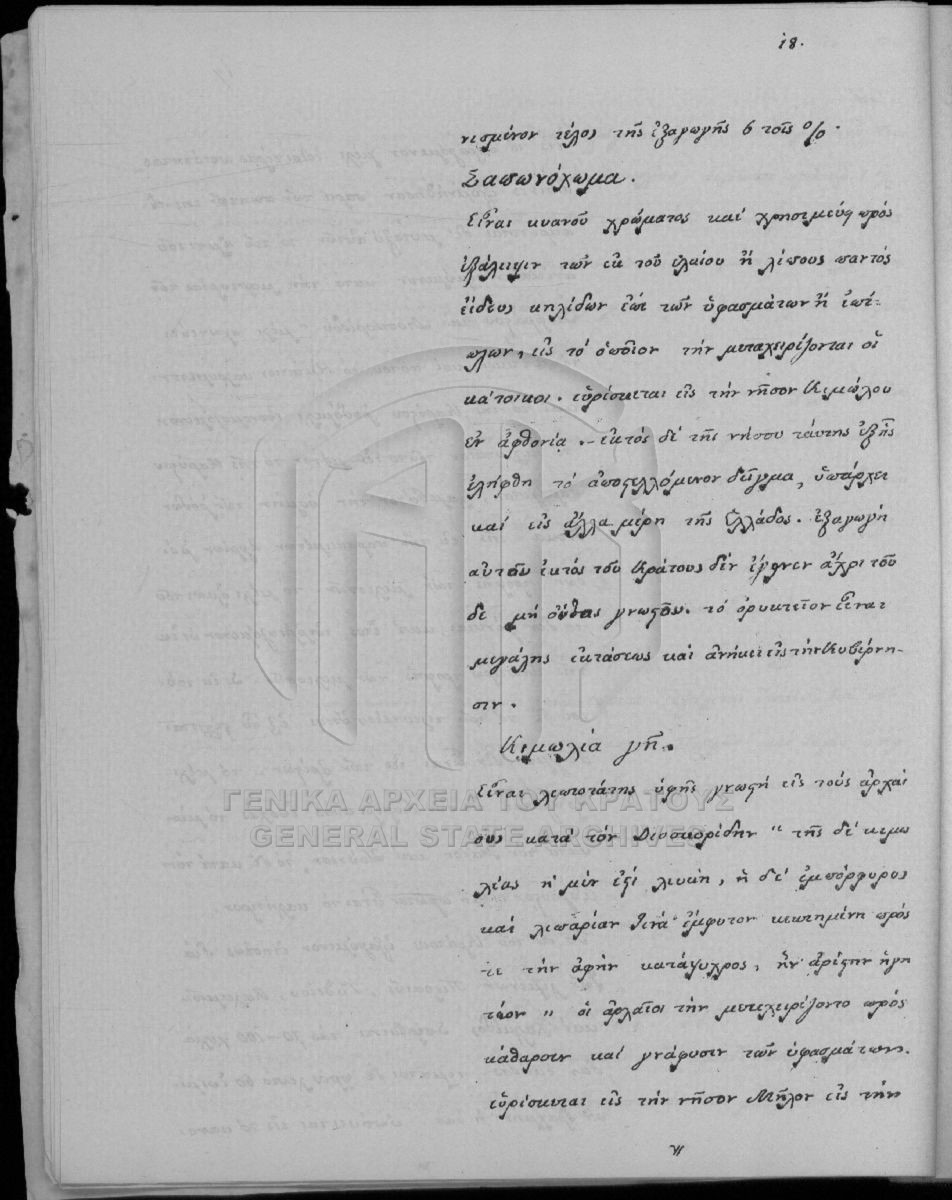 18.
νισμένον τέλος τῆς ἐξαγωγῆς 6 τοῖς %.
Σαπωνόχωμα.
Εἶναι κυανοῦ χρώματος καί χρησιμεύει πρός
ἐξάλειψιν τῶν ἐκ τοῦ ἐλαίου ἤ λίπους παντός
εἴδους κηλίδων ἐπί τῶν ὑφασμάτων ἤ ἐπί-
πλων, εἰς τό ὁποῖον τήν μεταχειρίζονται οἱ
κάτοικοι. εὑρίσκεται εἰς τήν νῆσον Κιμώλου
ἐν ἀφθονίᾳ. - ἐκτός δέ τῆς νήσου ταύτης ἐξ ἧς
ἐλήφθη τό ἀποστελλόμενον δεῖγμα, ὑπάρχει
καί εἰς ἄλλα μέρη τῆς Ἑλλάδος. ἐξαγωγή
αὐτοῦ ἐκτός τοῦ Κράτους δέν ἔγινεν ἄχρι τοῦ
δε μή οὖσα γνωστόν. τό ὀρυκτεῖον εἶναι
μεγάλης ἐκτάσεως καί ἀνήκει εἰς τήν Κυβέρνη-
σιν.
Κιμωλία γῆ.
Εἶναι λεπτοτάτης ὑφῆς γνωστή εἰς τούς ἀρχαί
ους κατά τόν Διοσκορίδην " τῆς δέ κιμω
λίας ἡ μέν ἐστί λευκή, ἡ δέ ἐμπόρφυρος
καί λιπαρίαν τινά ἔμφυτον κεκτημένη πρός
τε τήν ἀφήν κατάψυχρος, ἥν ἀρίστην ἡγη
τέον " οἱ ἀρχαῖοι τήν μετεχειρίζοντο πρός
κάθαρσιν καί γνάφυσιν τῶν ὑφασμάτων.
εὑρίσκεται εἰς τήν νῆσον Μῆλον εἰς τήν
ΓΕΝΙΚΑ ΑΡΧΕΙΑ ΤΟΥ ΚΡΑΤΟΥΣ
GENERAL STATE ARCHIVES